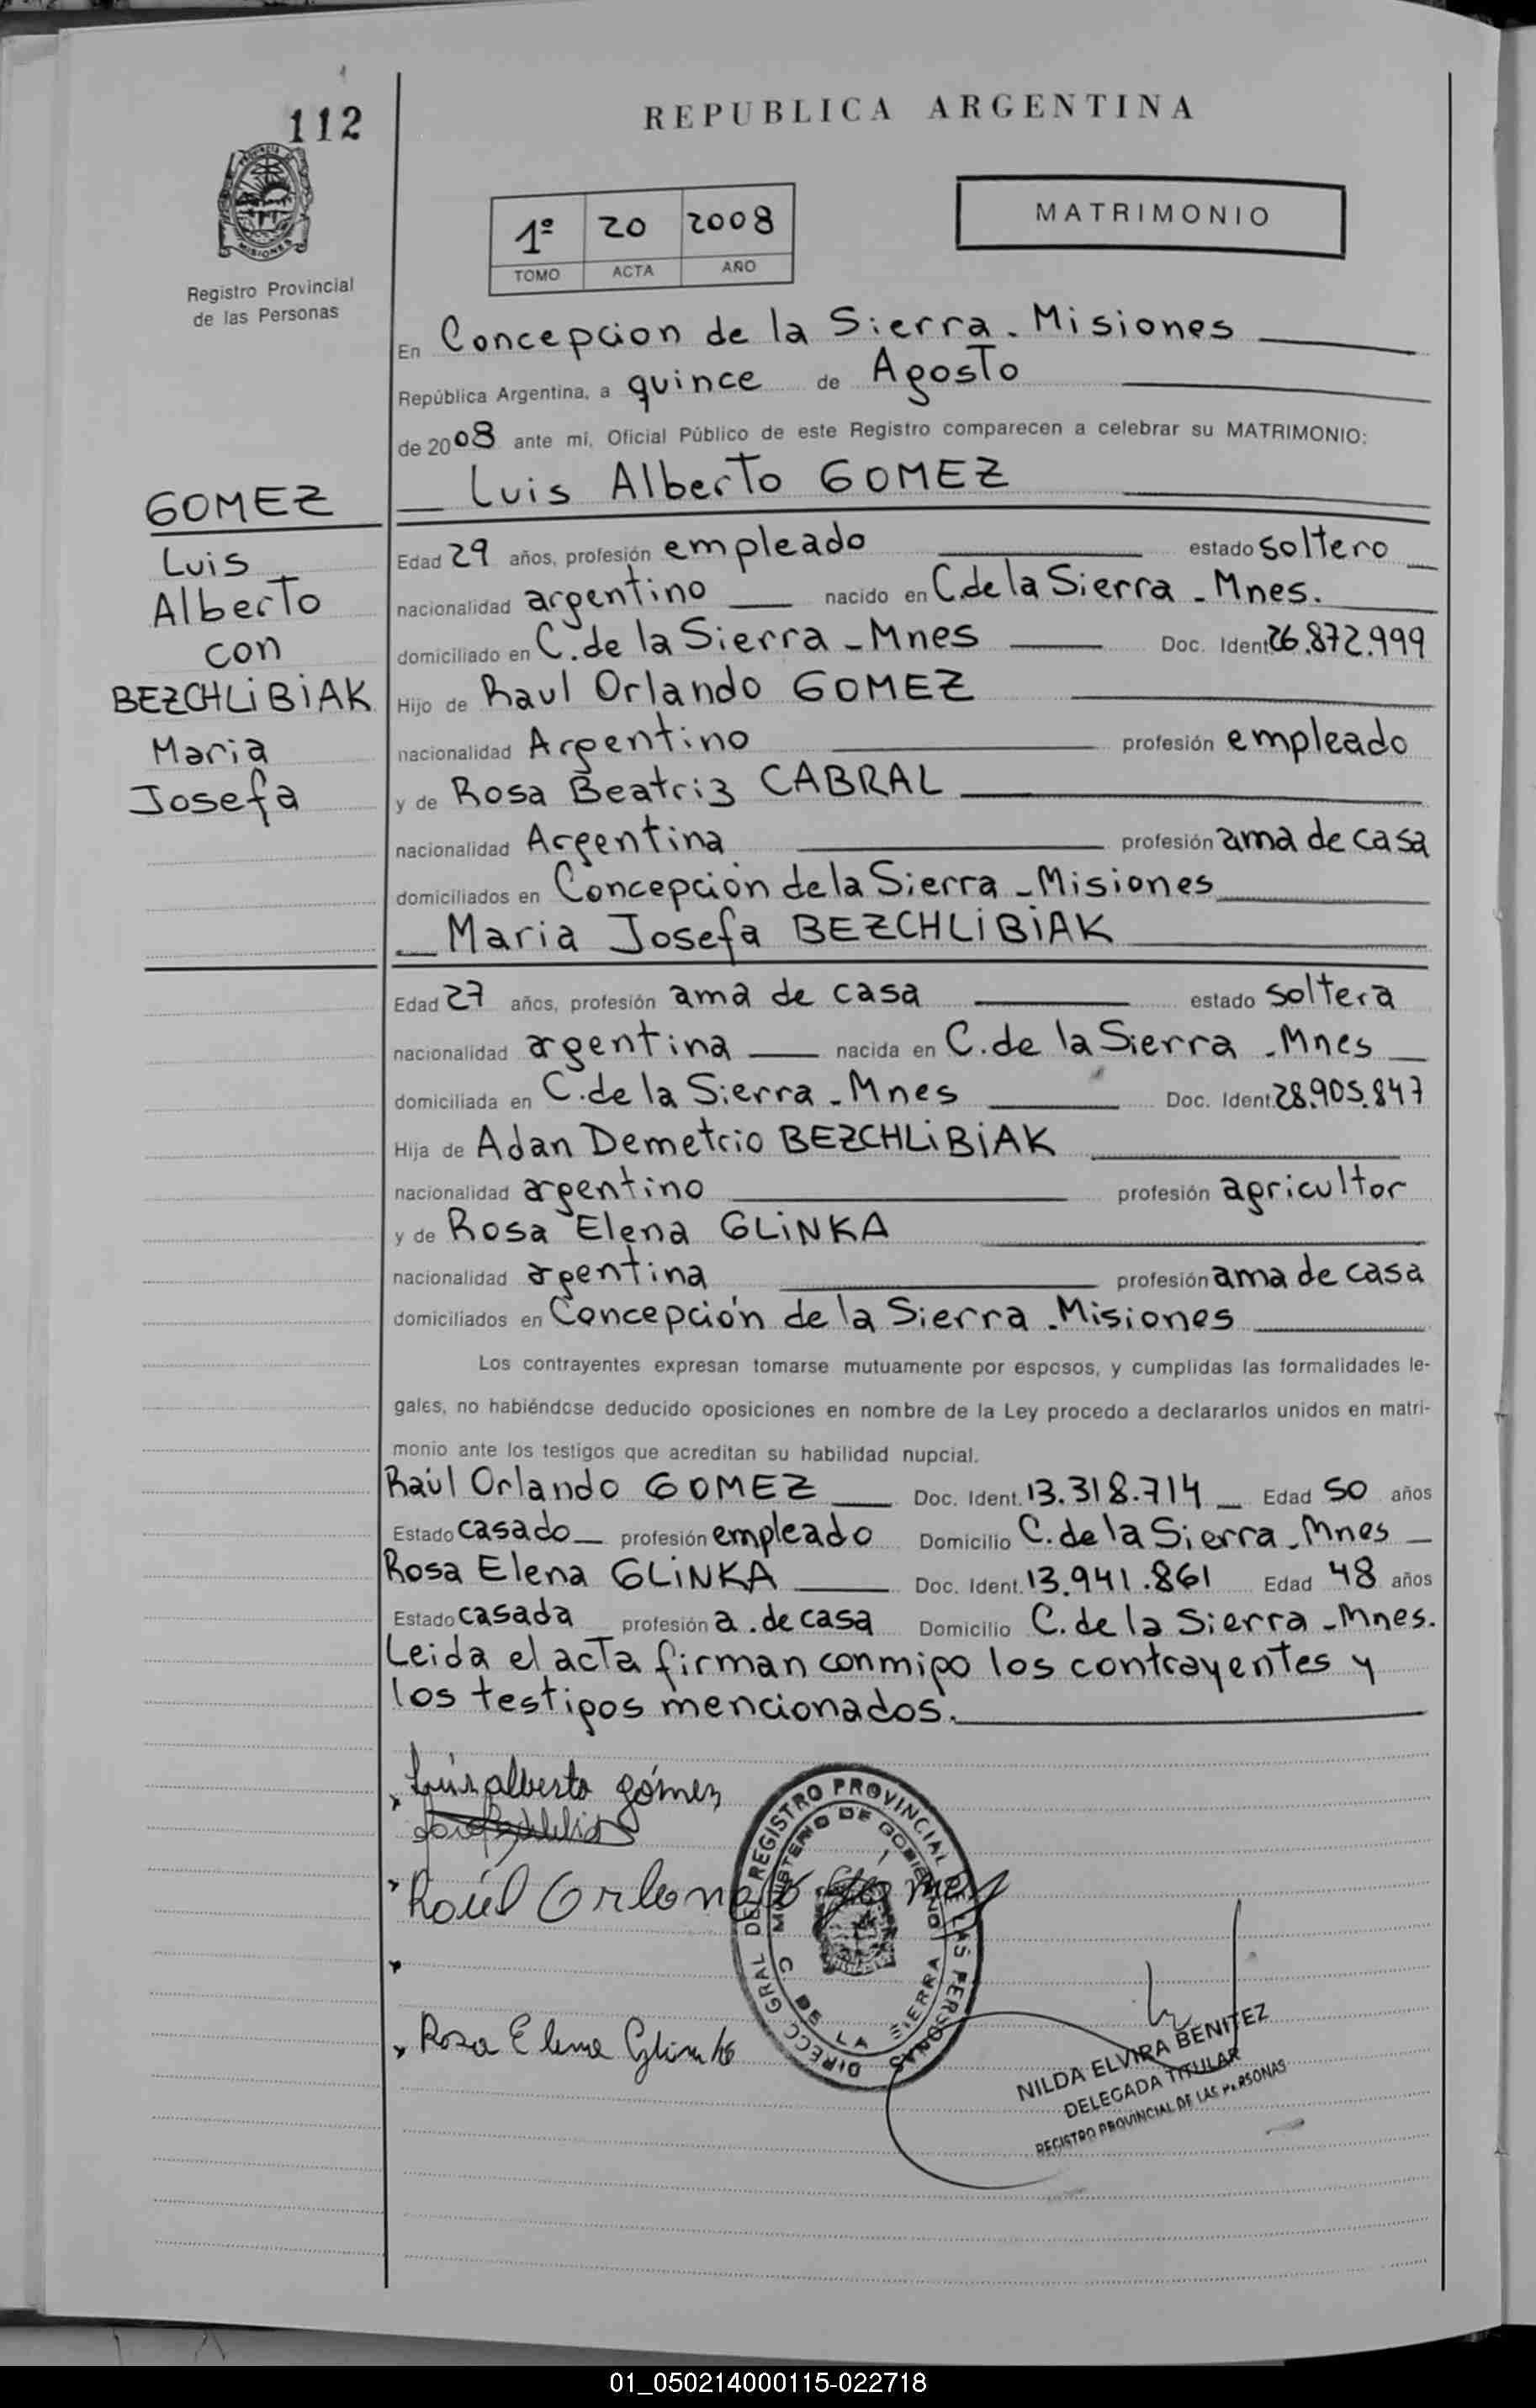 112
REPUBLICA ARGENTINA
PROVINCIA DE
MISIONES
Registro Provincial
de las Personas
1º 20 2008
TOMO ACTA AÑO
MATRIMONIO
En Concepcion de la Sierra - Misiones
República Argentina, a quince de Agosto
de 2008 ante mí, Oficial Público de este Registro comparecen a celebrar su MATRIMONIO:
Luis Alberto GOMEZ
GOMEZ
Luis
Alberto
con
BEZCHLiBiAK
Maria
Josefa
Edad 29 años, profesión empleado estado soltero
nacionalidad argentino nacido en C. de la Sierra - Mnes.
domiciliado en C. de la Sierra - Mnes Doc. Ident. 26.872.999
Hijo de Raul Orlando GOMEZ
nacionalidad Argentino profesión empleado
y de Rosa Beatriz CABRAL
nacionalidad Argentina profesión ama de casa
domiciliados en Concepción de la Sierra - Misiones
Maria Josefa BEZCHLiBiAK
Edad 27 años, profesión ama de casa estado soltera
nacionalidad argentina nacida en C. de la Sierra - Mnes
domiciliada en C. de la Sierra - Mnes Doc. Ident. 28.905.847
Hija de Adan Demetrio BEZCHLiBiAK
nacionalidad argentino profesión agricultor
y de Rosa Elena GLiNKA
nacionalidad argentina profesión ama de casa
domiciliados en Concepción de la Sierra - Misiones
Los contrayentes expresan tomarse mutuamente por esposos, y cumplidas las formalidades le-
gales, no habiéndose deducido oposiciones en nombre de la Ley procedo a declararlos unidos en matri-
monio ante los testigos que acreditan su habilidad nupcial.
Raúl Orlando GOMEZ Doc. Ident. 13.318.714 Edad 50 años
Estado casado profesión empleado Domicilio C. de la Sierra - Mnes
Rosa Elena GLiNKA Doc. Ident. 13.941.861 Edad 48 años
Estado casada profesión a. de casa Domicilio C. de la Sierra - Mnes.
Leida el acta firman conmigo los contrayentes y
los testigos mencionados.
Luis alberto gómez
Raúl Orlando Gómez
Rosa Elena Glinka
DIRECC GRAL DEL REGISTRO PROVINCIAL DE LAS PERSONAS
MINISTERIO DE GOBIERNO
C. DE LA SIERRA
NILDA ELVIRA BENITEZ
DELEGADA TITULAR
REGISTRO PROVINCIAL DE LAS PERSONAS
01_050214000115-022718